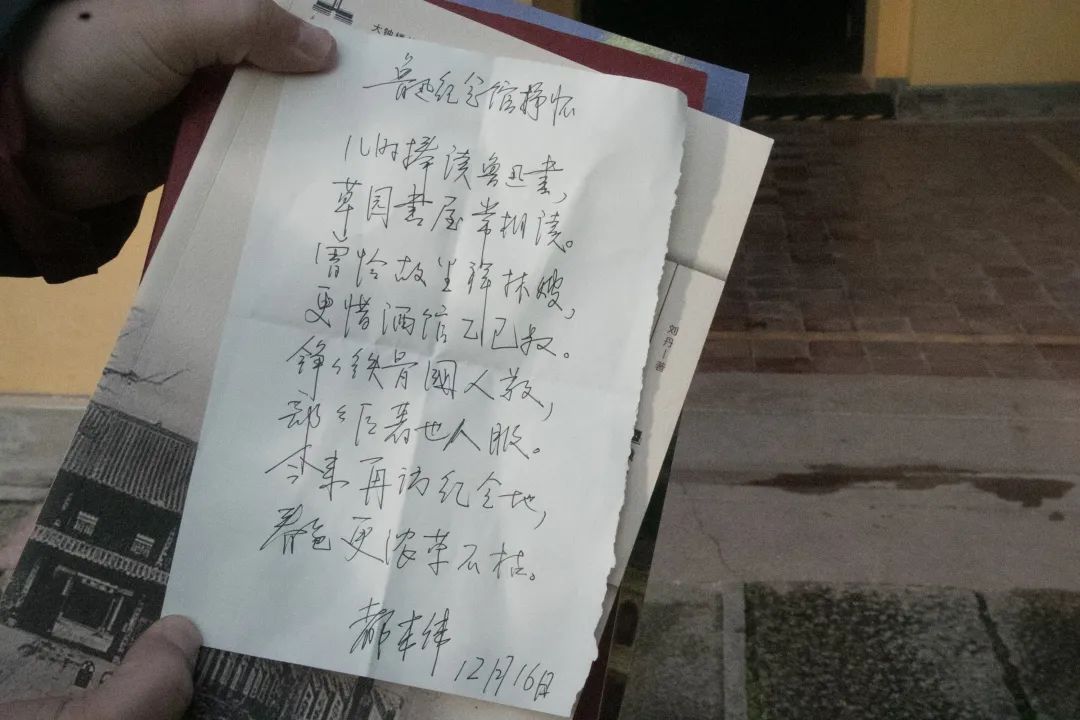 大钟楼
鲁迅纪念馆抒怀
儿时捧读鲁迅書,
草园書屋常相读。
曾怜故里祥林嫂,
更惜酒馆乙己叔。
铮々铁骨國人敬,
部々巨著世人服。
今来再访纪念地,
春色更浓草不枯。
12月16日
刘丹 著